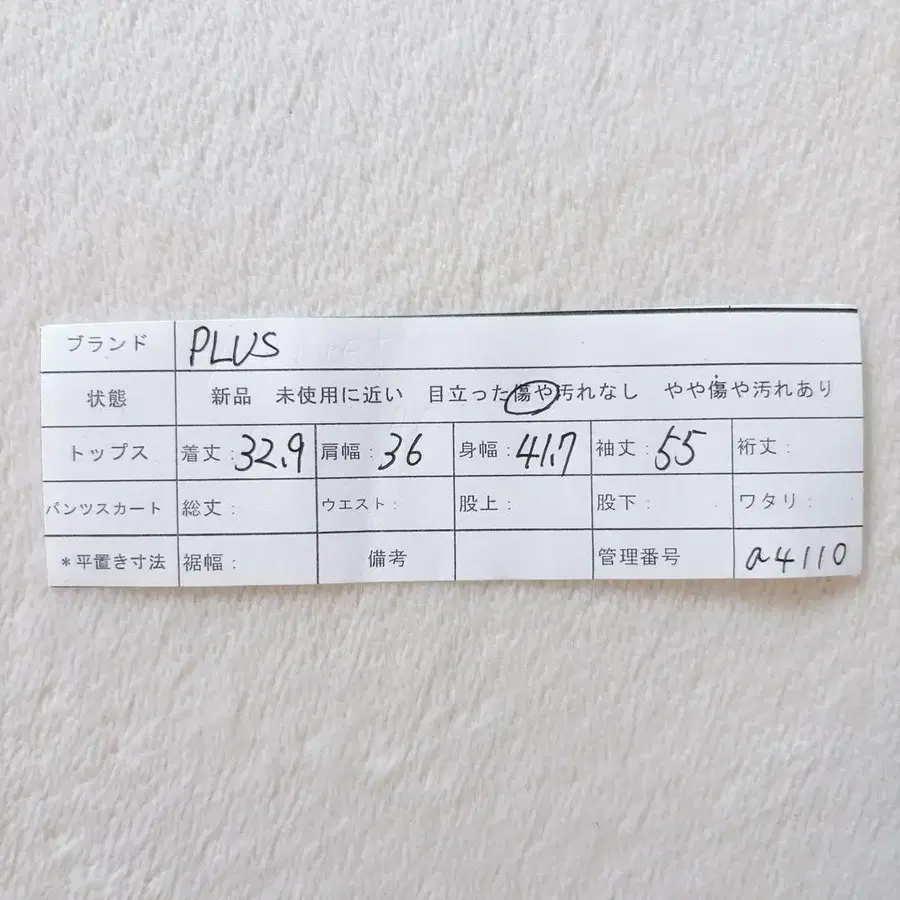 ブランド PLUS
状態 新品 未使用に近い 目立った傷や汚れなし やや傷や汚れあり
トップス 着丈:32.9 肩幅:36 身幅:41.7 袖丈:55 裄丈:
パンツスカート 総丈: ウエスト: 股上: 股下: ワタリ:
*平置き寸法 裾幅: 備考 管理番号 a4110